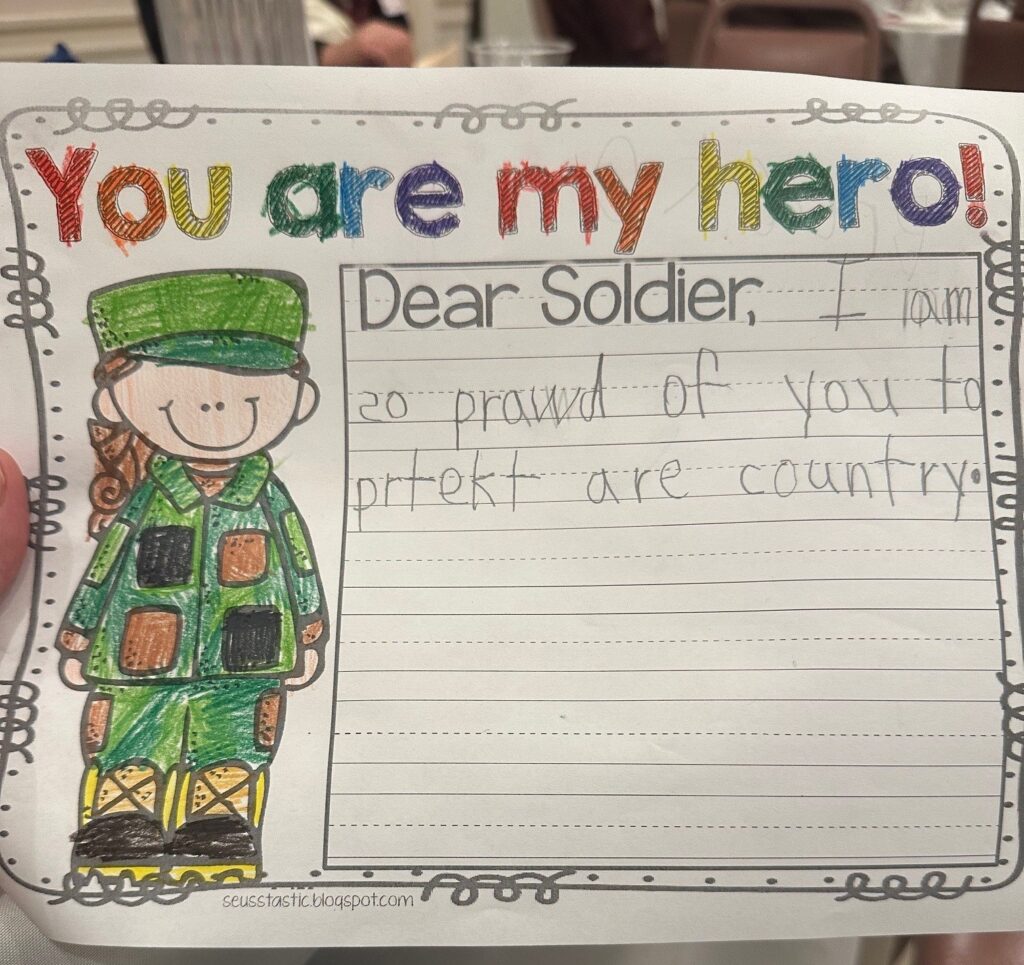 You are my hero!
Dear Soldier, I am
so prawd of you to
prtekt are country.
seusstastic.blogspot.com